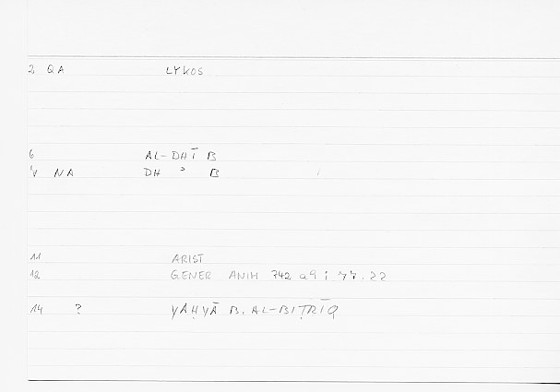 2 QA LYKOS
6 AL-DHĪ B
NA DH ʾ B
11 ARIST
12 GENER ANIM 742 a9 ; 77.22
14 ? YAḤYĀ B. AL-BIṬRĪQ